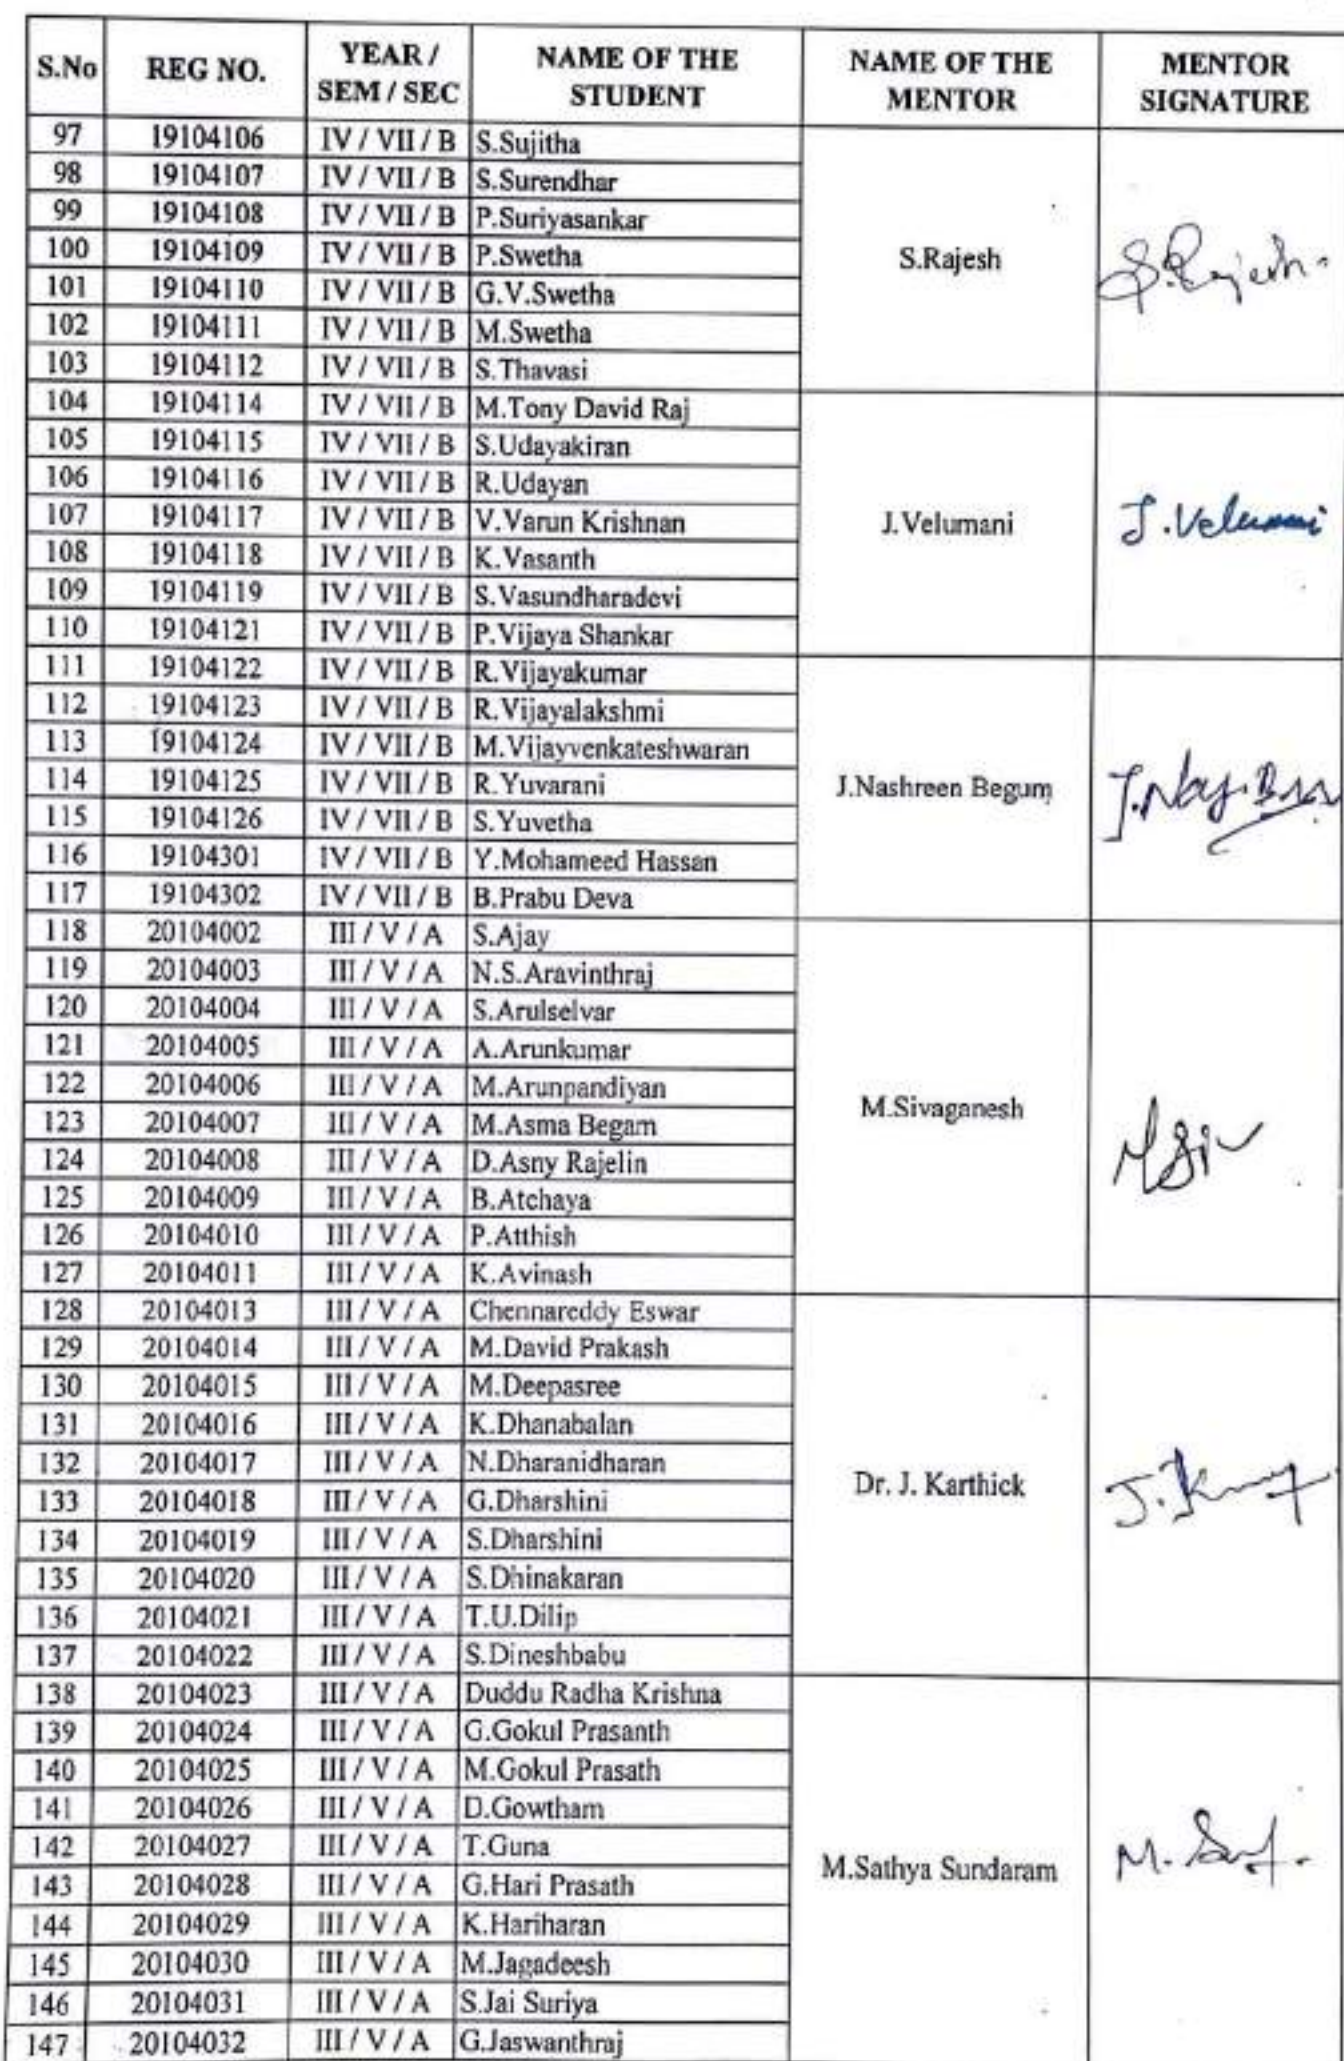 S.No REG NO. YEAR / SEM / SEC NAME OF THE STUDENT NAME OF THE MENTOR MENTOR SIGNATURE
97 19104106 IV / VII / B S.Sujitha
98 19104107 IV / VII / B S.Surendhar
99 19104108 IV / VII / B P.Suriyasankar
100 19104109 IV / VII / B P.Swetha S.Rajesh S.Rajesh
101 19104110 IV / VII / B G.V.Swetha
102 19104111 IV / VII / B M.Swetha
103 19104112 IV / VII / B S.Thavasi
104 19104114 IV / VII / B M.Tony David Raj
105 19104115 IV / VII / B S.Udayakiran
106 19104116 IV / VII / B R.Udayan
107 19104117 IV / VII / B V.Varun Krishnan J.Velumani J.Velumani
108 19104118 IV / VII / B K.Vasanth
109 19104119 IV / VII / B S.Vasundharadevi
110 19104121 IV / VII / B P.Vijaya Shankar
111 19104122 IV / VII / B R.Vijayakumar
112 19104123 IV / VII / B R.Vijayalakshmi
113 19104124 IV / VII / B M.Vijayvenkateshwaran
114 19104125 IV / VII / B R.Yuvarani J.Nashreen Begum
115 19104126 IV / VII / B S.Yuvetha
116 19104301 IV / VII / B Y.Mohameed Hassan
117 19104302 IV / VII / B B.Prabu Deva
118 20104002 III / V / A S.Ajay
119 20104003 III / V / A N.S.Aravinthraj
120 20104004 III / V / A S.Arulselvar
121 20104005 III / V / A A.Arunkumar
122 20104006 III / V / A M.Arunpandiyan M.Sivaganesh
123 20104007 III / V / A M.Asma Begam
124 20104008 III / V / A D.Asny Rajelin
125 20104009 III / V / A B.Atchaya
126 20104010 III / V / A P.Atthish
127 20104011 III / V / A K.Avinash
128 20104013 III / V / A Chennareddy Eswar
129 20104014 III / V / A M.David Prakash
130 20104015 III / V / A M.Deepasree
131 20104016 III / V / A K.Dhanabalan
132 20104017 III / V / A N.Dharanidharan Dr. J. Karthick
133 20104018 III / V / A G.Dharshini
134 20104019 III / V / A S.Dharshini
135 20104020 III / V / A S.Dhinakaran
136 20104021 III / V / A T.U.Dilip
137 20104022 III / V / A S.Dineshbabu
138 20104023 III / V / A Duddu Radha Krishna
139 20104024 III / V / A G.Gokul Prasanth
140 20104025 III / V / A M.Gokul Prasath
141 20104026 III / V / A D.Gowtham
142 20104027 III / V / A T.Guna M.Sathya Sundaram
143 20104028 III / V / A G.Hari Prasath
144 20104029 III / V / A K.Hariharan
145 20104030 III / V / A M.Jagadeesh
146 20104031 III / V / A S.Jai Suriya
147 20104032 III / V / A G.Jaswanthraj